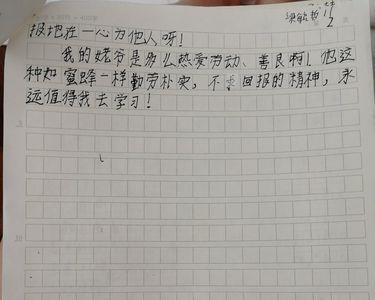 梁敏哲
报地在一心为他人呀！
我的姥爷是多么热爱劳动、善良啊！他这
种如蜜蜂一样勤劳朴实，不求回报的精神，永
远值得我去学习！